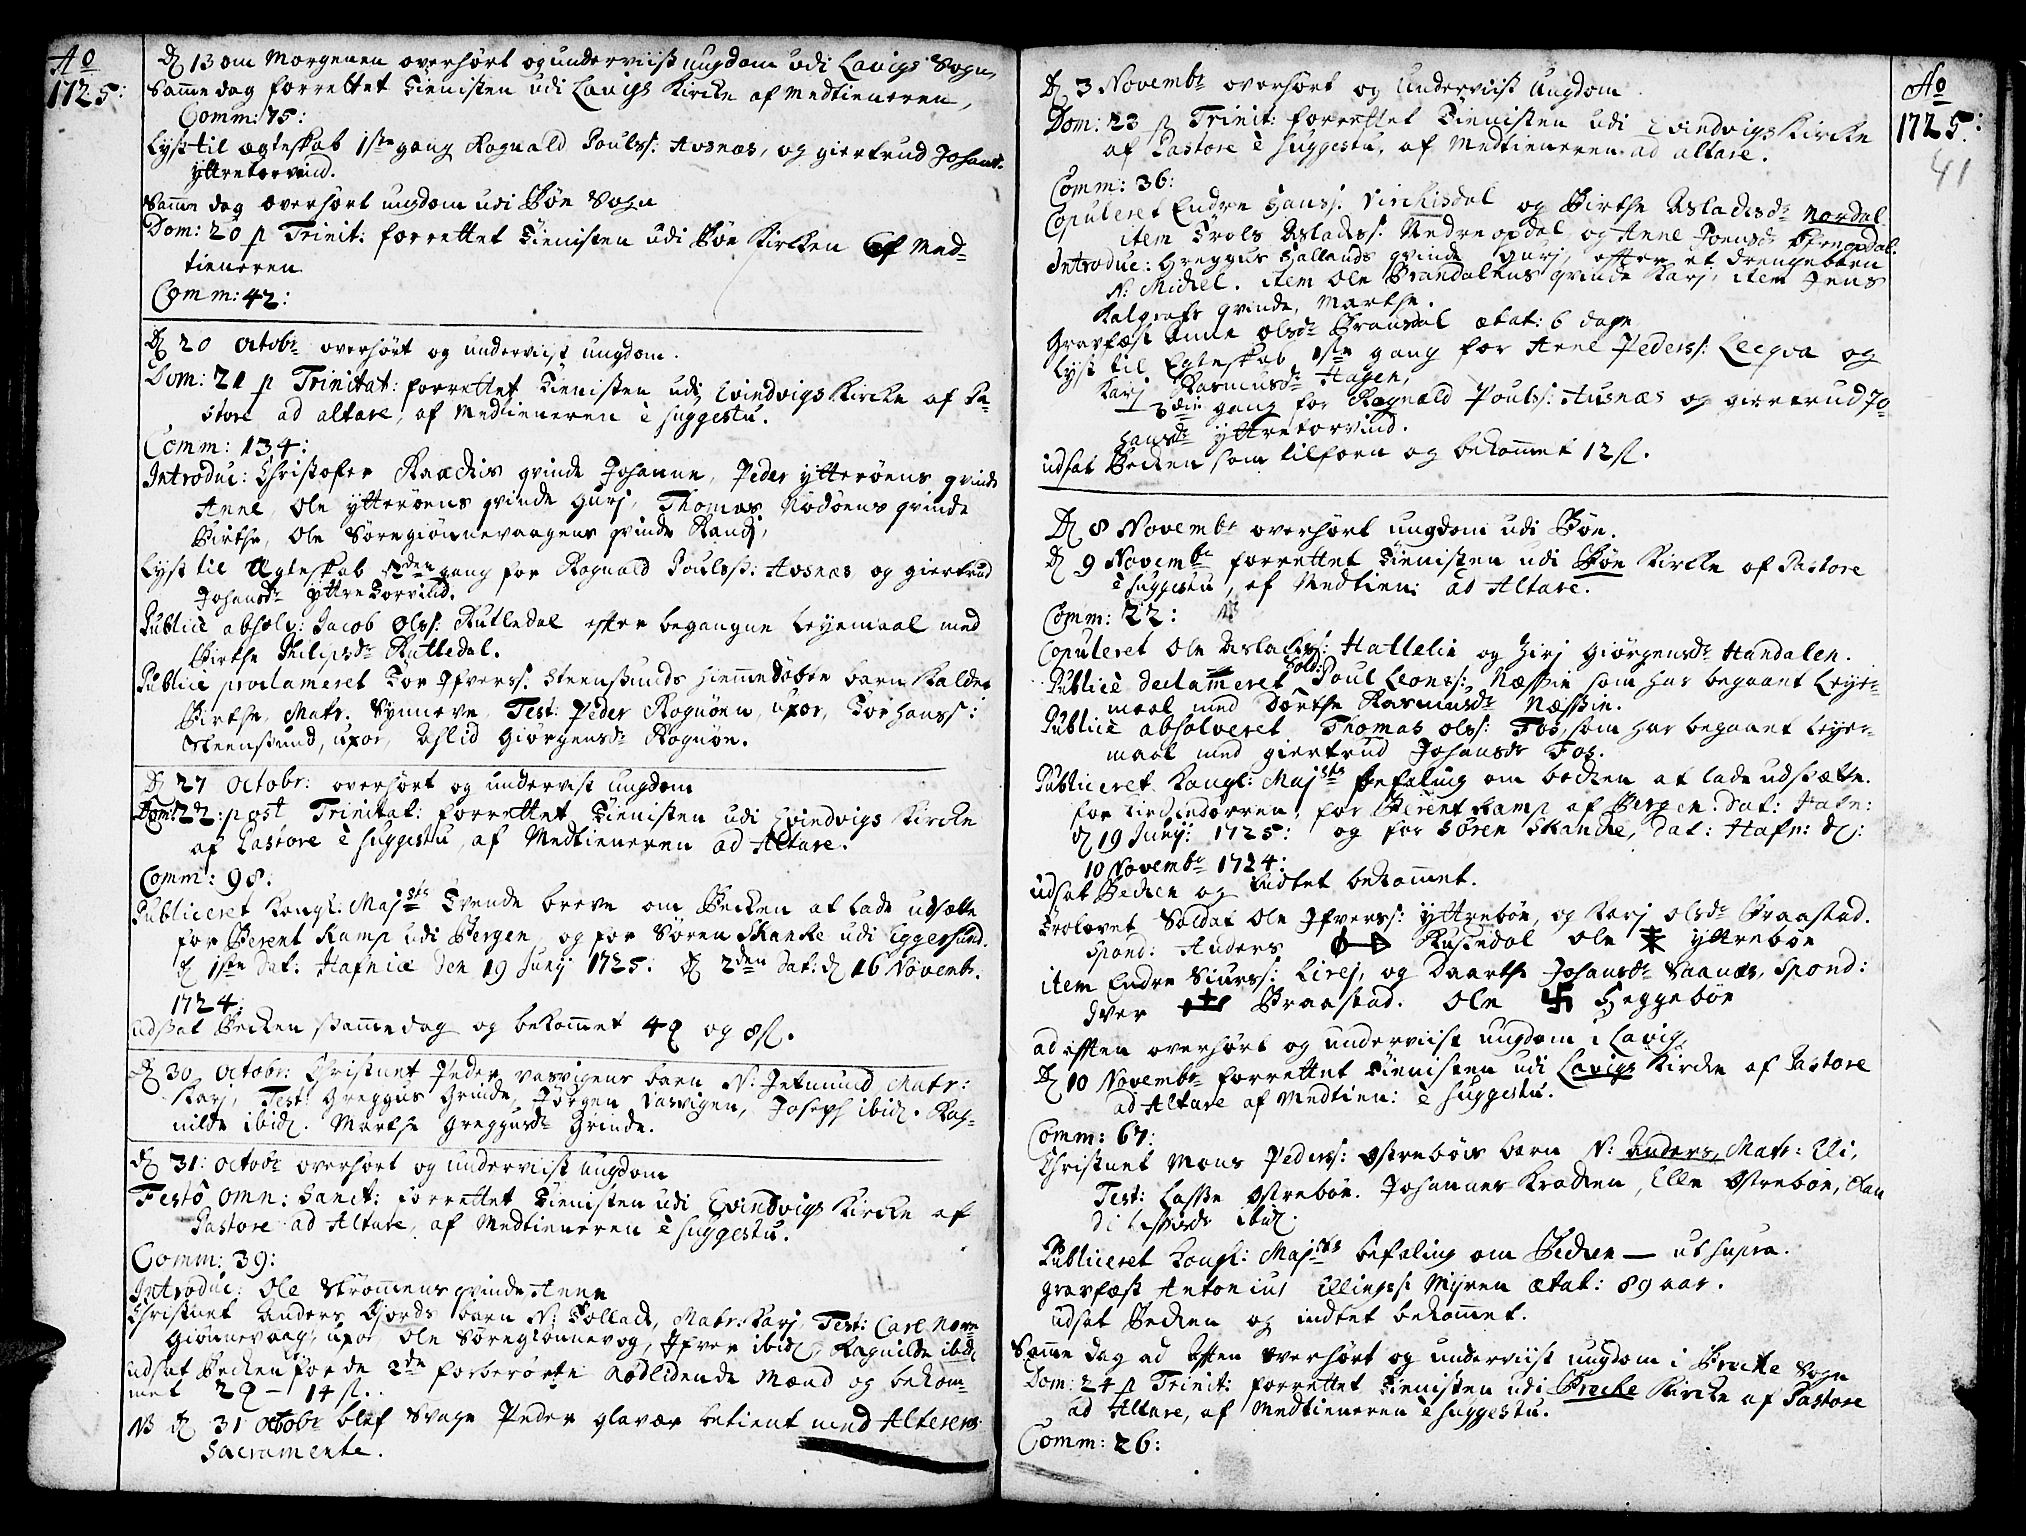 Ao
1725:
D 13 om Morgenen overhørt og underviist ungdom udi Lavigs Sogn,
Samme dag forrettet Tienisten udi Lavigs Kircke af Medtieneren,
Comm: 75:
Lyst til ægteskab 1ste gang Rognald Poulss: Avsnæs, og giertrud Johansd.
yttretorvind.
Samme dag overhørt ungdom udi Bøe Sogn
Dom: 20 p Trinit: forrettet Tienisten udi Bøe Kircken af Med=
tieneren
Comm: 42:
D 20 Octobr overhørt og underviist ungdom.
Dom: 21 p Trinitat: forrettet Tienisten udi Evindvigs Kircke af Pa=
store ad altare, af Medtieneren è suggestu.
Comm: 134:
Introduc: Christofer Raadies qvinde Johanne, Peder ytterøens qvinde
Anne, Ole ytterøens qvinde Guri, Thomas Nodøens qvinde
Birthe, Ole Søregiønnevaagens qvinde Randj,
Lyst til Ægteskab 2den gang for Rognald Poulss: Avsnæs og giertrud
Johansdr yttre Torvind.
Publicè absolv: Jacob Olss: Rutledal efter begangne Leyemaal med
Birthe Philipsdr Rutledal.
Publicè proclameret Tor Ifverss: Steensunds hiemmedøbte barn kaldet
Birthe, Matr. Synneve, Test: Peder Rognøen, uxor, Tor hanss:
Steensund, uxor, Aslid Giørgensdr Rognøn.
D 27 Octobr: overhørt og undervist ungdom
Dom: 22: post Trinitat: forrettet Tienisten udi Evindvigs Kircke
af Pastore è suggestu, af Medtieneren ad Altare.
Comm: 98:
Publiceret Kongl: Majsts Tvende breve om Becken at lade udsætte
for Berent Kamp udi Bergen og for Søren Skanke udi Eggersund.
D 1ste dat: Hafniæ den 19 Junij 1725: D 2den dat: D 16 Novembr.
1724:
udsat Becken sammedag og bekommet 4 og 8 s.
D 30 Octobr: Christnet Peder vasvigens barn N: Jetmund Matr:
Karj, Test: Greggus Grinde, Jørgen vasvigen, Joseph ibid. Rag=
nilde ibid. Marthe Greggusdr Grinde.
D 31: Octobr overhørt og underviist ungdom
Festo Omn: Sanct: forrettet Tienisten udi Evindvigs Kircke af
Pastore ad Altare, af Medtieneren è suggestu.
Comm: 39:
Introduc: Ole Strømmens qvinde Anne
Christnet Anders Fjords barn N: Tollack, Matr: Karj Test: Carl Nore
Giønnevaag, uxor, Ole Søregiønnevog, Ifver ibid Ragnilde ibid
udsat Becken for de 2de forberørte Nødlidende Mænd og bekom=
met 2 – 14 s.
NB D 31 Octobr blef Svage Peder glavær betient med Alterens
Sacramente.
D 3 Novembr overhørt og Underviist Ungdom
Dom: 23 p Trinit: forrettet Tienisten udi Evindvigs Kircke
af Pastore è suggestu, af Medtieneren ad altare.
Comm: 36:
Copuleret Endre Hanss: Virchisdal og Birthe Asladsdr Nordal
item Trols Asladss: Nedreopdal og Anne Joensdr
Introduc: Greggus Hallands qvinde Gurj, efter et drengebarn
N: Michel. item Ole Brandalens qvinde Karj, item Jens
Kalgrafs qvinde, Marthe.
Gravfæst Anne Olsdr Bransdal ætat: 6 dage
Lyst til Egteskab 1ste gang for Arne Pederss: Leeqva og
Karj Rasmusdr Hagen,
3die gang for Rognald Poulss: Ausnæs og giertrud Jo=
hansdr yttretorvind.
udsat Becken som tilforn og bekommet 12 s.
D 8 Novembr overhørt ungdom udi Bøe.
D 9 Novembr forrettet Tienisten udi Bøe Kircke af Pastore
è suggestu, af Medtien: ad Altare.
Comm: 22:
Copuleret Ole Aslachs: Hallelie og Zirj Giørgensdr Handalen.
Publicè declameret Sold: Poul Leonss: Næssie som har begaaet Leye=
maal med Dorthe Rasmusdr Næssie.
Publicè absolveret Thomas olss: Fos, som har begaaet leye=
maal med giertrud Johansdr Fos.
Publiceret Kongl: Majsts Befaling om becken at lade udsætte
for Kirckedørren, for Berent Kamp af Bergen. dat: Hafn:
D 19 Junij: 1725: og for Søren Skancke, dat: Hafn: D:
10 Novembr 1724:
udsat Becken og Indtet bekommet.
Trolovet Soldat Ole Ifverss: yttrebøe, og Karj olsdr Braastad.
Spond: Anders Rusedal Ole yttrebøe
item Endre Siurss: Lirej, og Daarthe Johansdr Saanæs, Spond:
Iver Braastad. Ole 卐 Heggebøe
ad efften overhørt og underviist ungdom i Lavig.
D 10 Novembr forrettet Tienisten udi Lavigs Kircke af Pastore
ad Altare af Medtien: è suggestu.
Comm: 67:
Christnet Mons Pederss: Østrebøes barn N: Anders, Matr: Eli,
Test: Lasse Østrebøe. Johannes Kracken, Elle Østrebøe,
ibid.
Publiceret Kongl: Majsts befaling om Becken — ut supra.
gravfæst Antonius Ellingss: Myren ætat: 89 aar.
udsat Becken og indtet bekommet.
Samme dag ad Aften overhørt og underviist ungdom i Brecke Sogn
Dom: 24 p Trinit: forrettet Tienisten udi Brecke Kircke af Pastore
ad Altare, af Medtieneren è suggestu.
Comm: 26:
Ao
1725:
41